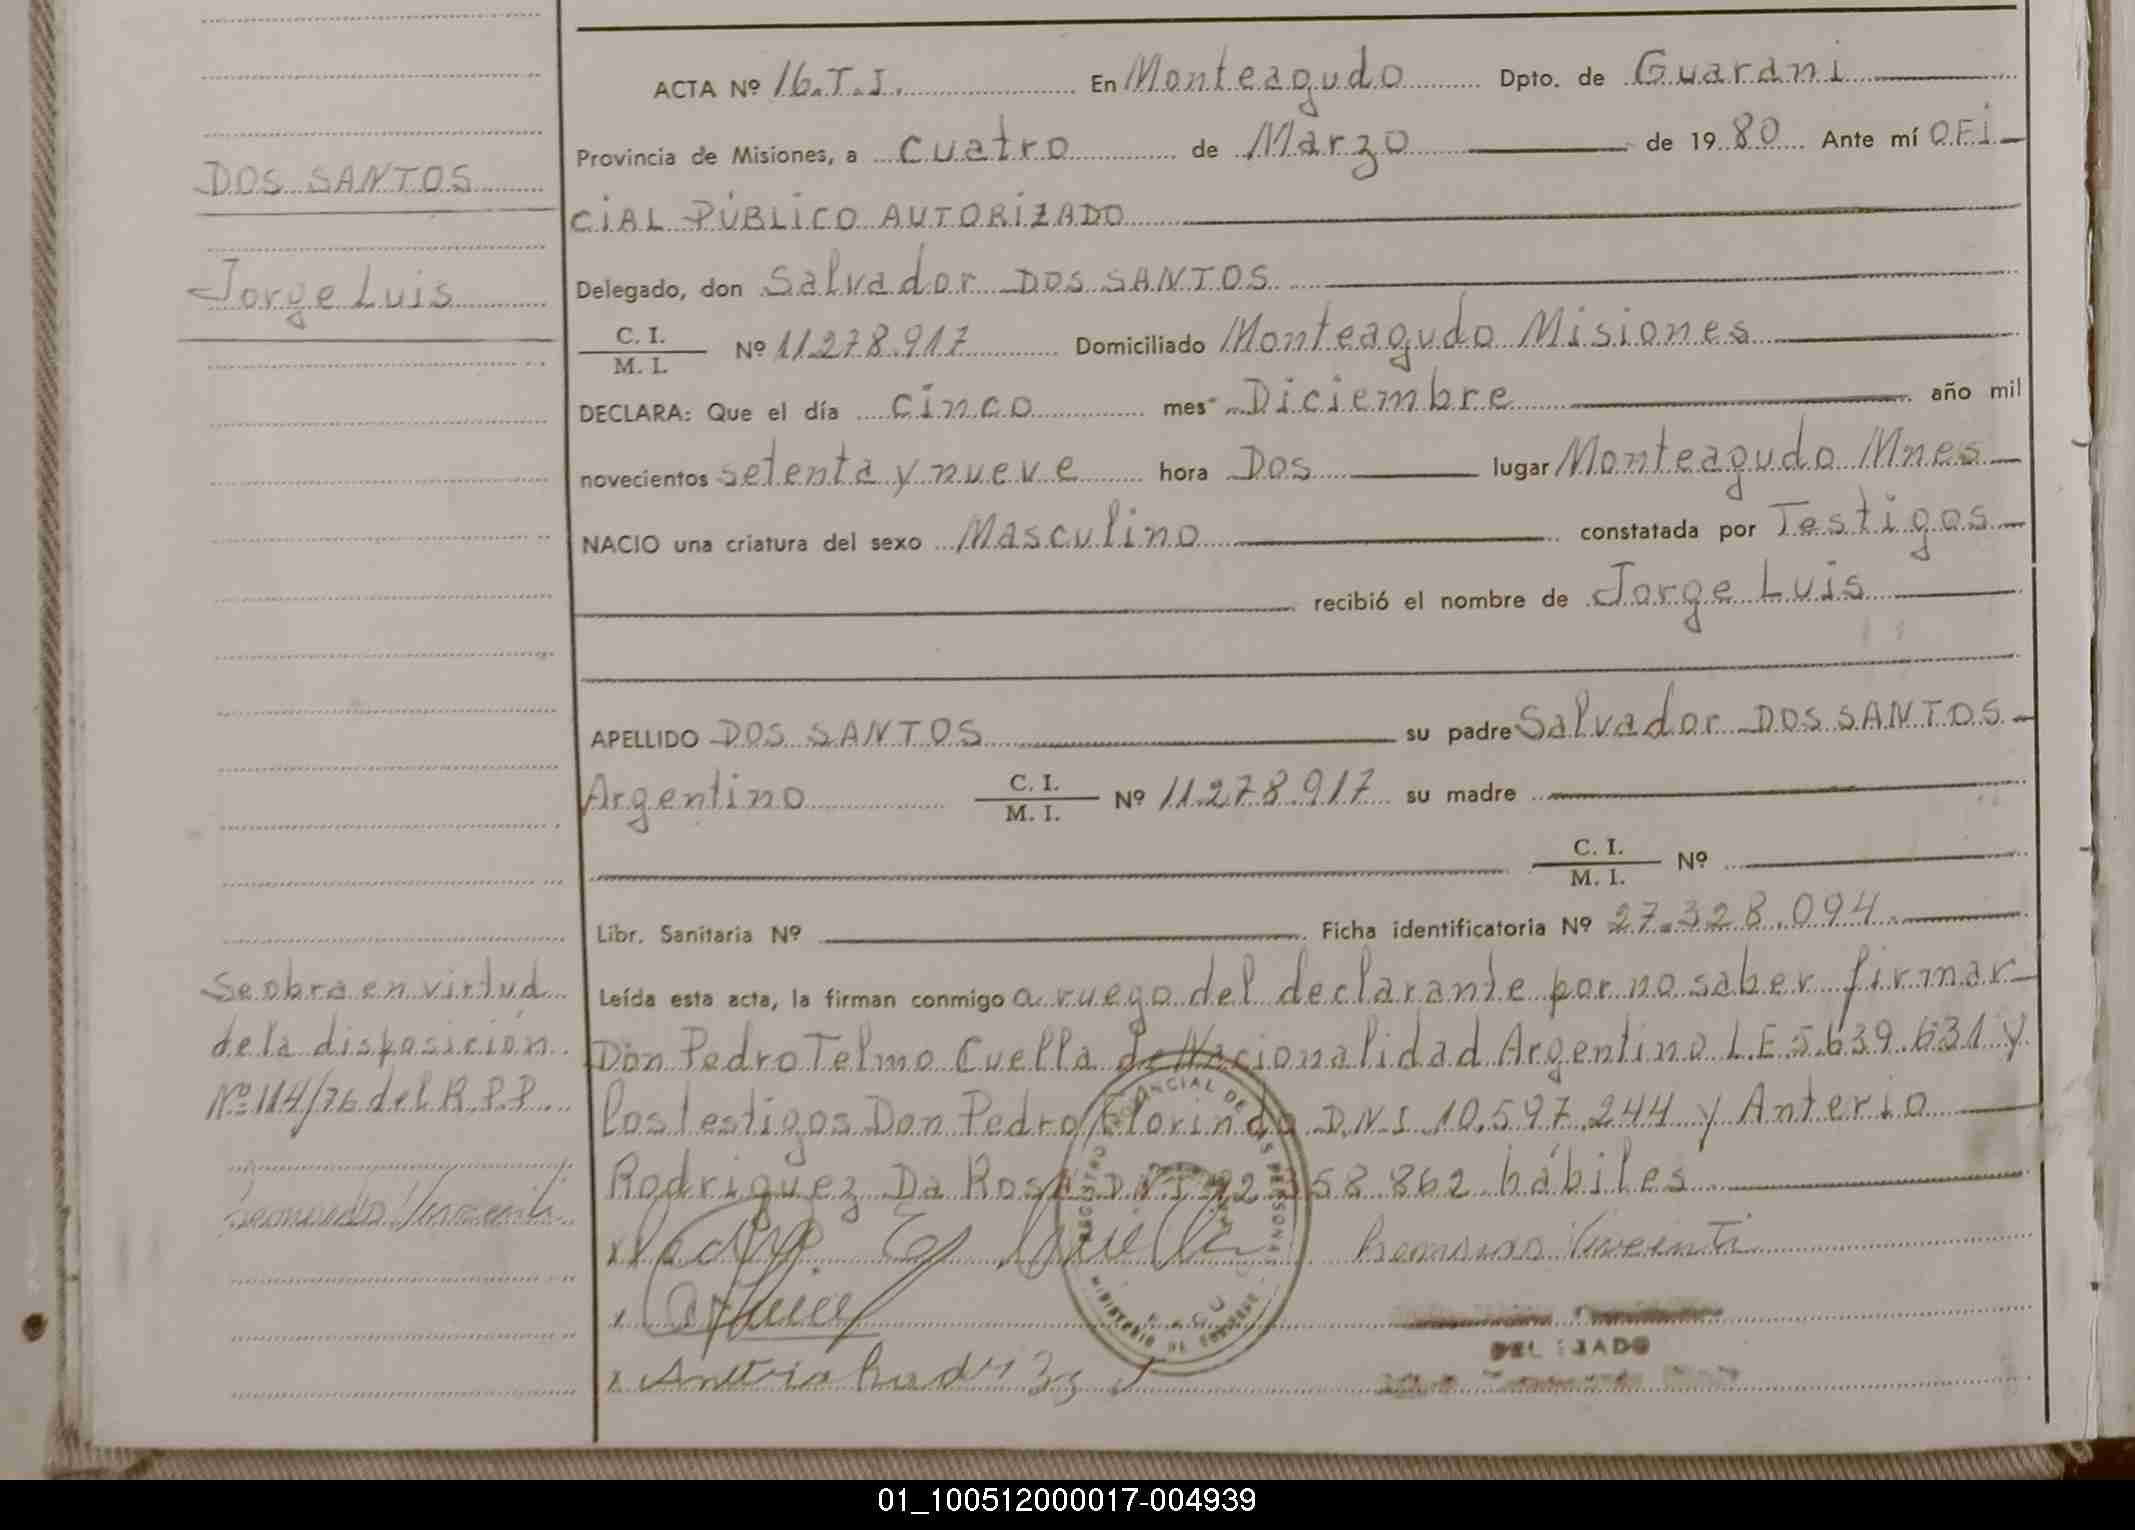 ACTA Nº 16.T.I. En Monteagudo Dpto. de Guarani
Provincia de Misiones, a cuatro de Marzo de 1980 Ante mí OFI
CIAL PÚBLICO AUTORIZADO
Delegado, don Salvador DOS SANTOS
C. I.
M. I. Nº 11.278.917 Domiciliado Monteagudo Misiones
DECLARA: Que el día cinco mes Diciembre año mil
novecientos setenta y nueve hora Dos lugar Monteagudo Mnes
NACIO una criatura del sexo Masculino constatada por Testigos
recibió el nombre de Jorge Luis
APELLIDO DOS SANTOS su padre Salvador DOS SANTOS
Argentino C. I.
M. I. Nº 11.278.917 su madre
C. I.
M. I. Nº
Libr. Sanitaria Nº Ficha identificatoria Nº 27.328.094
Leída esta acta, la firman conmigo a ruego del declarante por no saber firmar
Don Pedro Telmo Cuella de Nacionalidad Argentino L.E 5.639.631 y
los testigos Don Pedro Florindo D.N.I. 10.597.244 y Anterio
Rodriguez Da Rosa DNI 92 358.862 hábiles
DELEGADO
DOS SANTOS
Jorge Luis
Se obra en virtud
de la disposición
Nº 114/76 del R.P.P.
REGISTRO PROVINCIAL DE LAS PERSONAS
MINISTERIO DE GOBIERNO
01_100512000017-004939